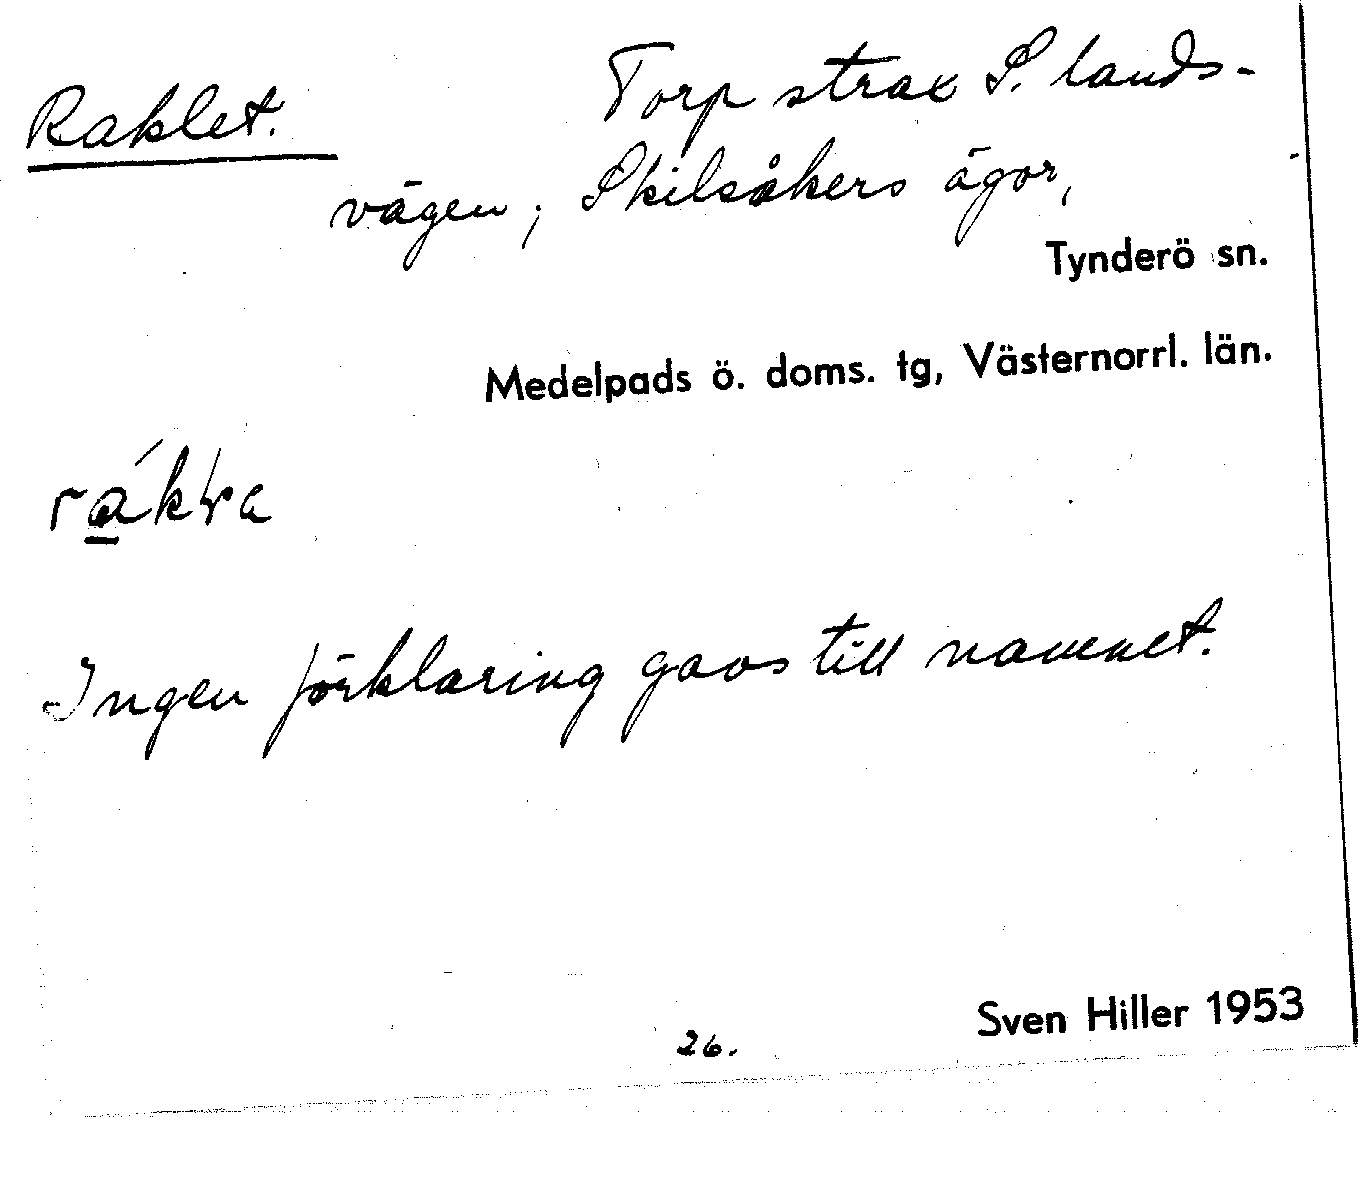 Raklet.
Torp strax S. lands-
vägen; Skilsåkers ägor,
Tynderö sn.
Medelpads ö. doms. tg, Västernorrl. län.
Ingen förklaring gavs till namnet.
26.
Sven Hiller 1953